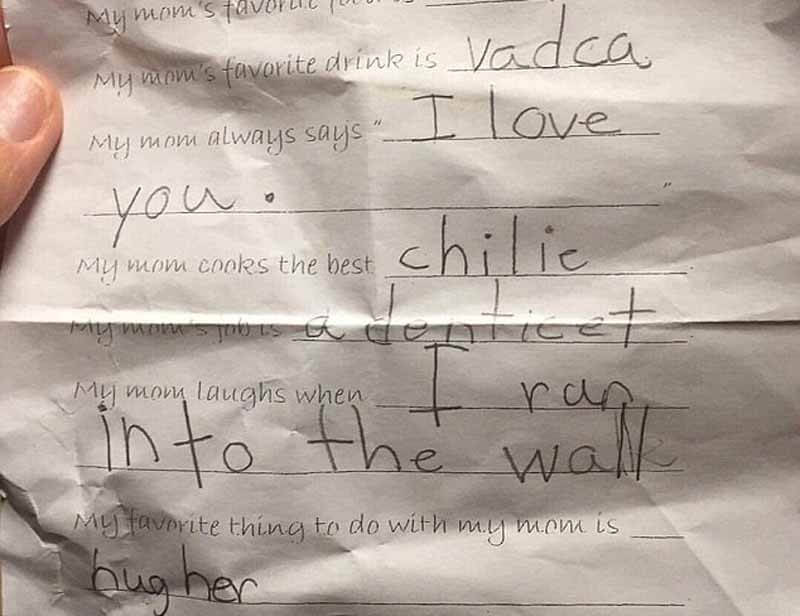 My mom's favorite
My mom's favorite drink is vadca
My mom always says "I love
you."
My mom cooks the best chilie.
My mom's job is a denticet.
My mom laughs when I ran
into the wall
My favorite thing to do with my mom is
hug her